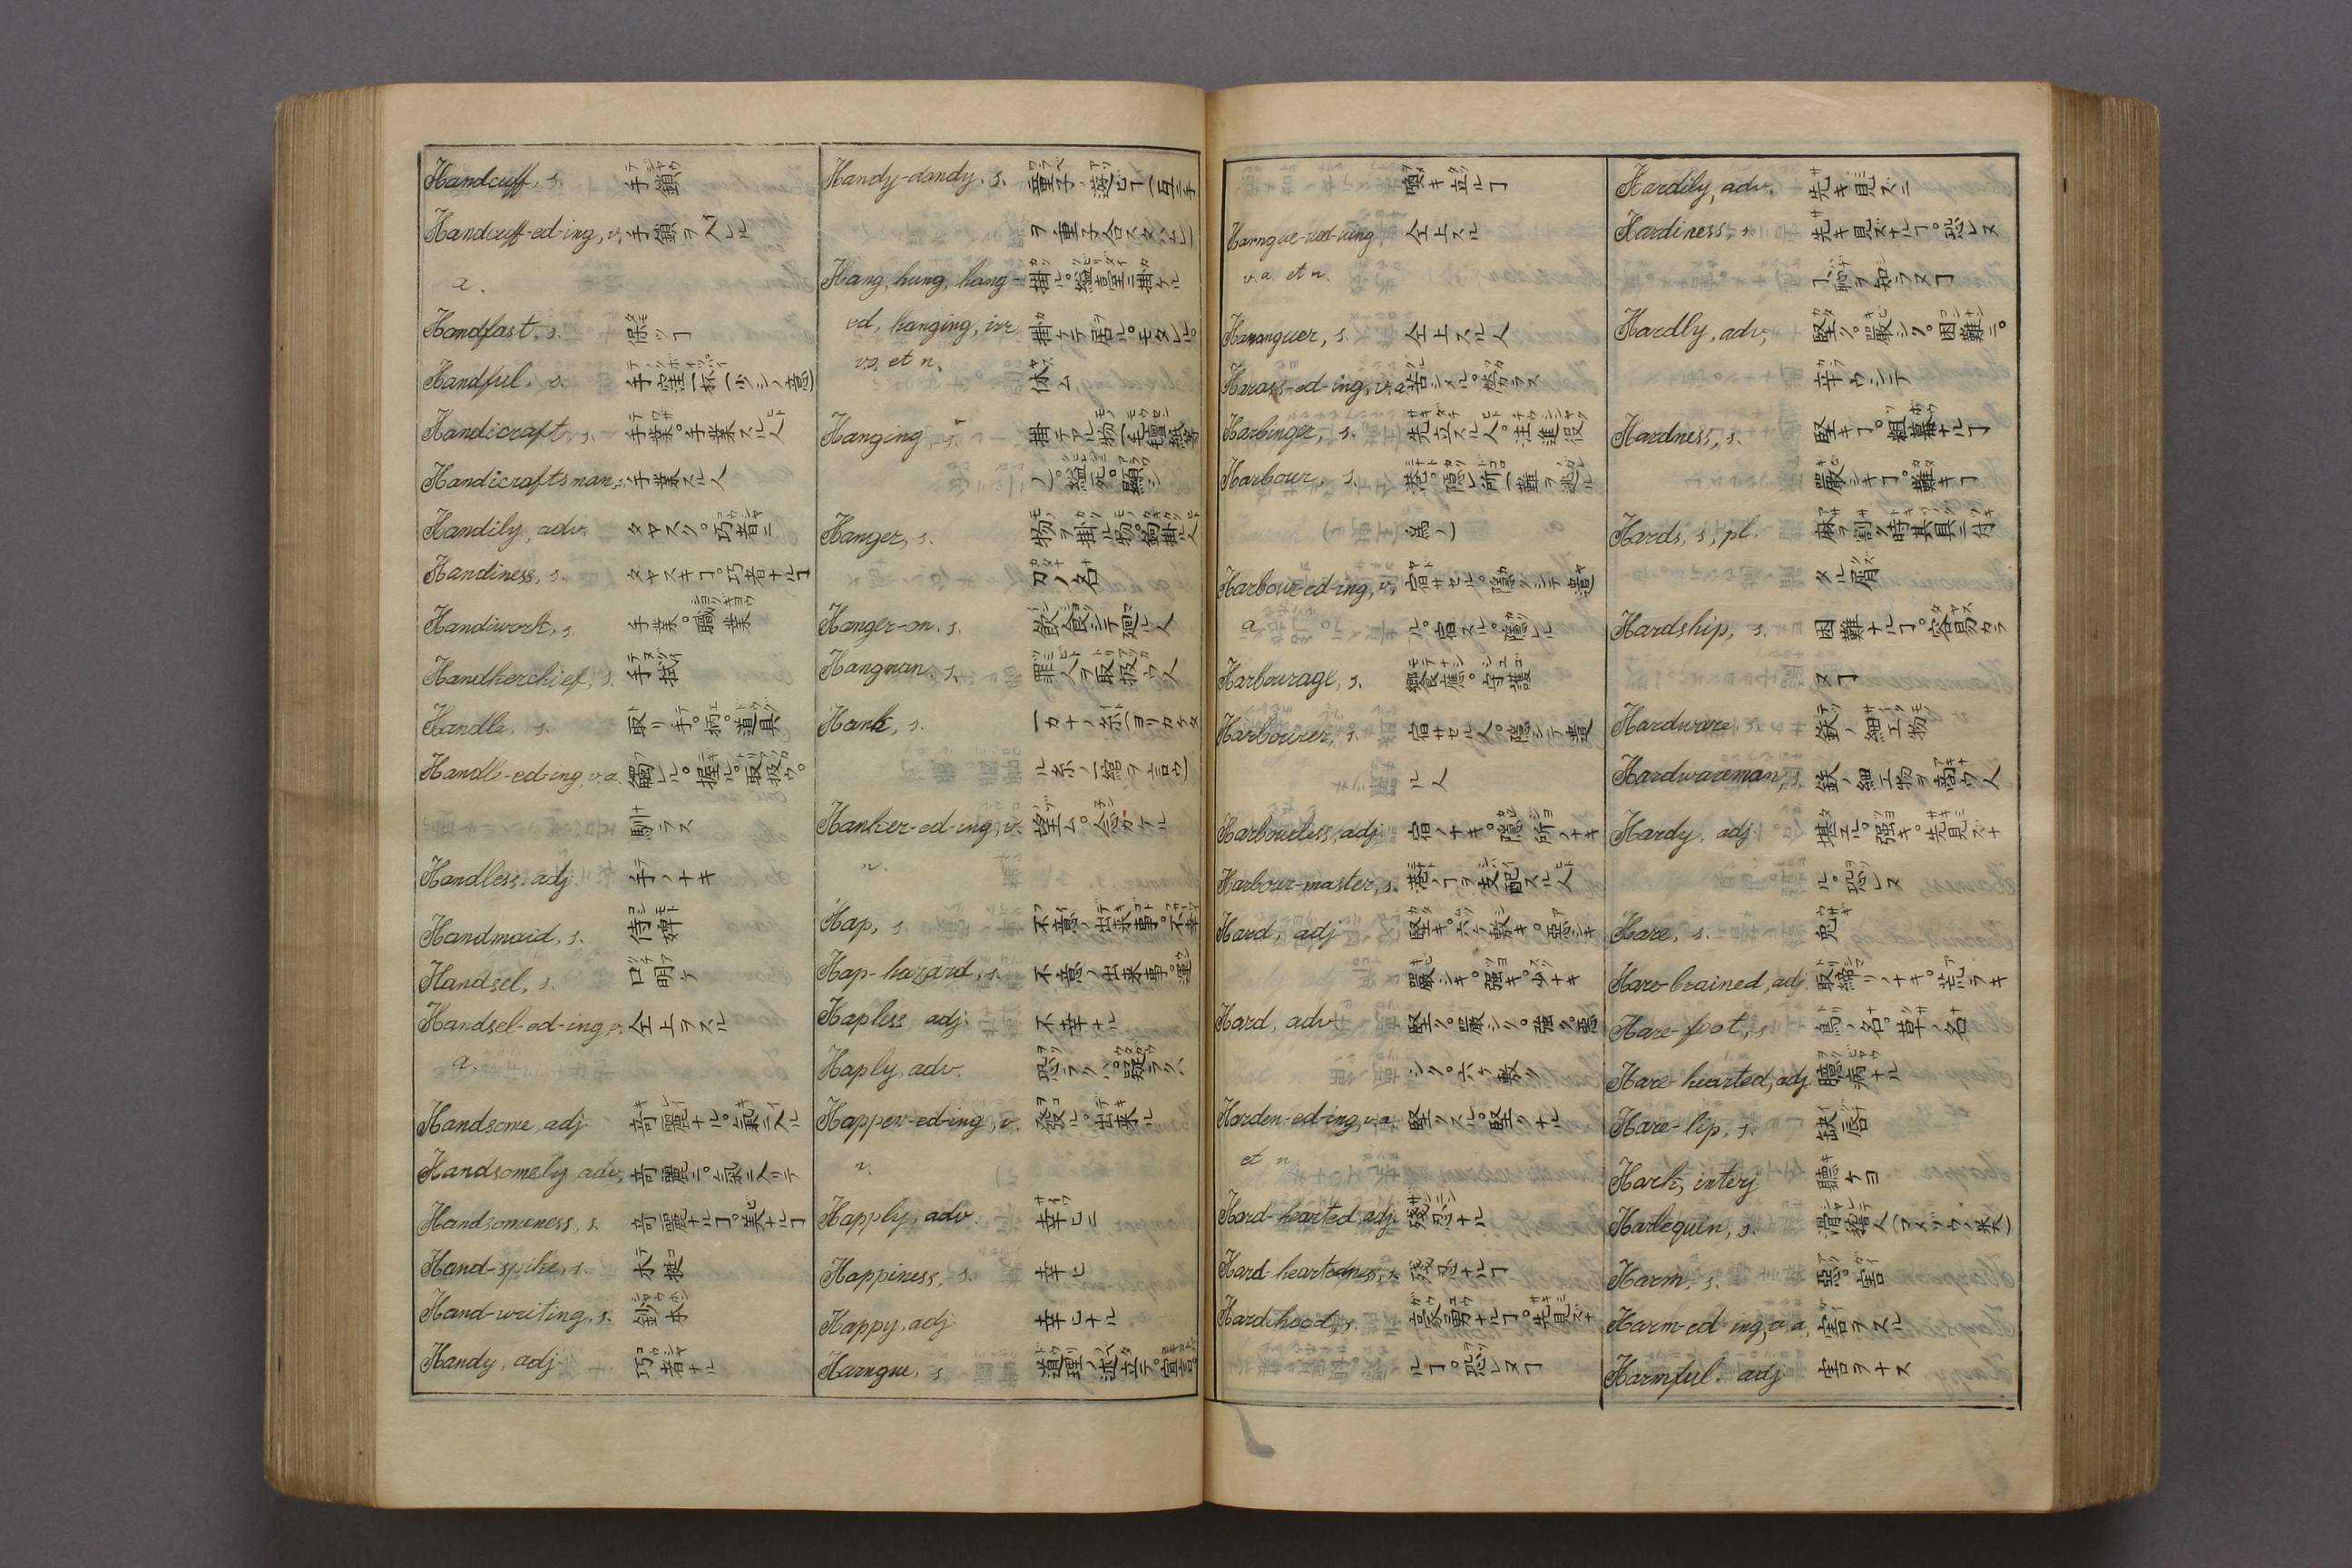 Handcuff, s. 手鎖
Handcuff-ed-ing, v. 手鎖ヲ入レル
a.
Handfast, s. 保ツヿ
Handful, s. 手窪一杯(少シノ意)
Handicraft, s. 手業。手業スル人
Handicraftsman, s. 手業スル人
Handily, adv. タヤスク。巧者ニ
Handiness, s. タヤスキヿ。巧者ナルヿ
Handiwork, s. 手業。職業
Handkerchief, s. 手拭
Handle, s. 取リ手。柄。道具
Handle-ed-ing, v.a. 觸レル。握ル。取扱ウ。
馴ラス
Handless, adj. 手ノナキ
Handmaid, s. 侍婢
Handsel, s. 口明ケ
Handsel-ed-ing, v. 仝上ヲスル
a.
Handsome, adj. 奇麗ナル。氣ニ入ル
Handsomely, adv. 奇麗ニ。氣ニ入リテ
Handsomeness, s. 奇麗ナルヿ。美ナルヿ
Hand-spike, s. 木挺
Hand-writing, s.
Handy, adj. 巧者ナル
Handy-dandy, s. 童子ノ遊ビ
Hang, hung, hang- 掛ル。縊ル
ed, hanging, irr. 掛ケテ居ル。モタレル。
v.a. et n. 休ム
Hanging, s. 掛テアル物
縊死。顕シ
Hanger, s. 物ヲ掛ル物。
刀ノ名
Hanger-on, s. 飲食シテ廻ル人
Hangman, s. 罪人ヲ取扱ウ人
Hank, s. 一カナノ糸(ヨリカケタ
ル糸ノ一綰ヲ言ウ)
Hanker-ed-ing, v. 望ム。念ガケル
n.
Hap, s. 不意ノ出来事。不幸
Hap-hazard, s. 不意ノ出来事。運
Hapless adj. 不幸ナル
Haply, adv. 恐ラクハ。疑ラクハ
Happen-ed-ing, v. 發ル。出来ル
n.
Happly, adv. 幸ヒニ
Happiness, s. 幸ヒ
Happy, adj. 幸ヒナル
Harngue, s. 道理ノ述立テ。宣言。
喚キ立ルヿ
Harngue-ued-uing 仝上スル
v.a. et n.
Haranguer, s. 仝上スル人
Harass-ed-ing, v.a. 苦シメル。労ラス
Harbinger, s. 先立スル人。注進役
Harbour, s. 港。隠レ所(難ヲ逃ル
為ノ)
Harbour-ed-ing, v. 宿サセル。隠クシテ遣
a. ル。宿スル。隠レル
Harbourage, s. 饗應。守護
Harbourer, s. 宿サセル人。隠シテ遣
ル人
Harbourless, adj. 宿ノナキ。隠レ所ノナキ
Harbour-master, s. 港ノヿヲ支配スル人
Hard, adj. 堅キ。六ケ敷キ。悪シキ
嚴シキ。強キ。少ナキ
Hard, adv. 堅ク。嚴シク。強ク。悪
シク。六ケ敷ク
Harden-ed-ing, v.a. 堅クスル。堅クナル
et n.
Hard-hearted, adj. 殘忍ナル
Hard-heartedness, s. 残忍ナルヿ
Hardihood, s. 豪勇ナルヿ。先キ見ズナ
ルヿ。恐レヌヿ
Hardily, adv. 先キ見ズニ
Hardiness, s. 先キ見ズナルヿ。恐レヌ
ヿ。恥ヲ知ラヌヿ
Hardly, adv, 堅ク。嚴シク。困難ニ。
辛ウシテ
Hardness, s. 堅キヿ。粗暴ナルヿ
嚴シキヿ。難キヿ
Hards, s, pl. 麻ヲ割ク時其具ニ付
タル屑
Hardship, s. 困難ナルヿ。容易カラ
ヌヿ
Hardware, s. 鉄ノ細工物
Hardwareman, s. 鉄ノ細工物ヲ商ウ人
Hardy, adj. 堪エル。強キ。先見ズナ
ル。恐レヌ
Hare, s. 兎
Hare-brained, adj. 取締リノナキ。荒ラキ
Hare-foot, s. 鳥ノ名。草ノ名
Hare-hearted, adj. 臆病ナル
Hare-lip, s. 缺唇
Hark, interj 聽ケヨ
Harlequin, s.
Harm, s. 惡。害
Harm-ed-ing, v.a, 害ヲスル
Harmful. adj 害ヲナス